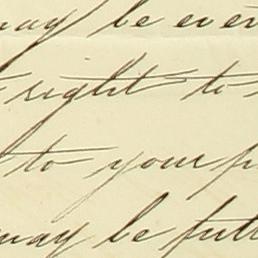 may be ever
right to
to your p
may be full